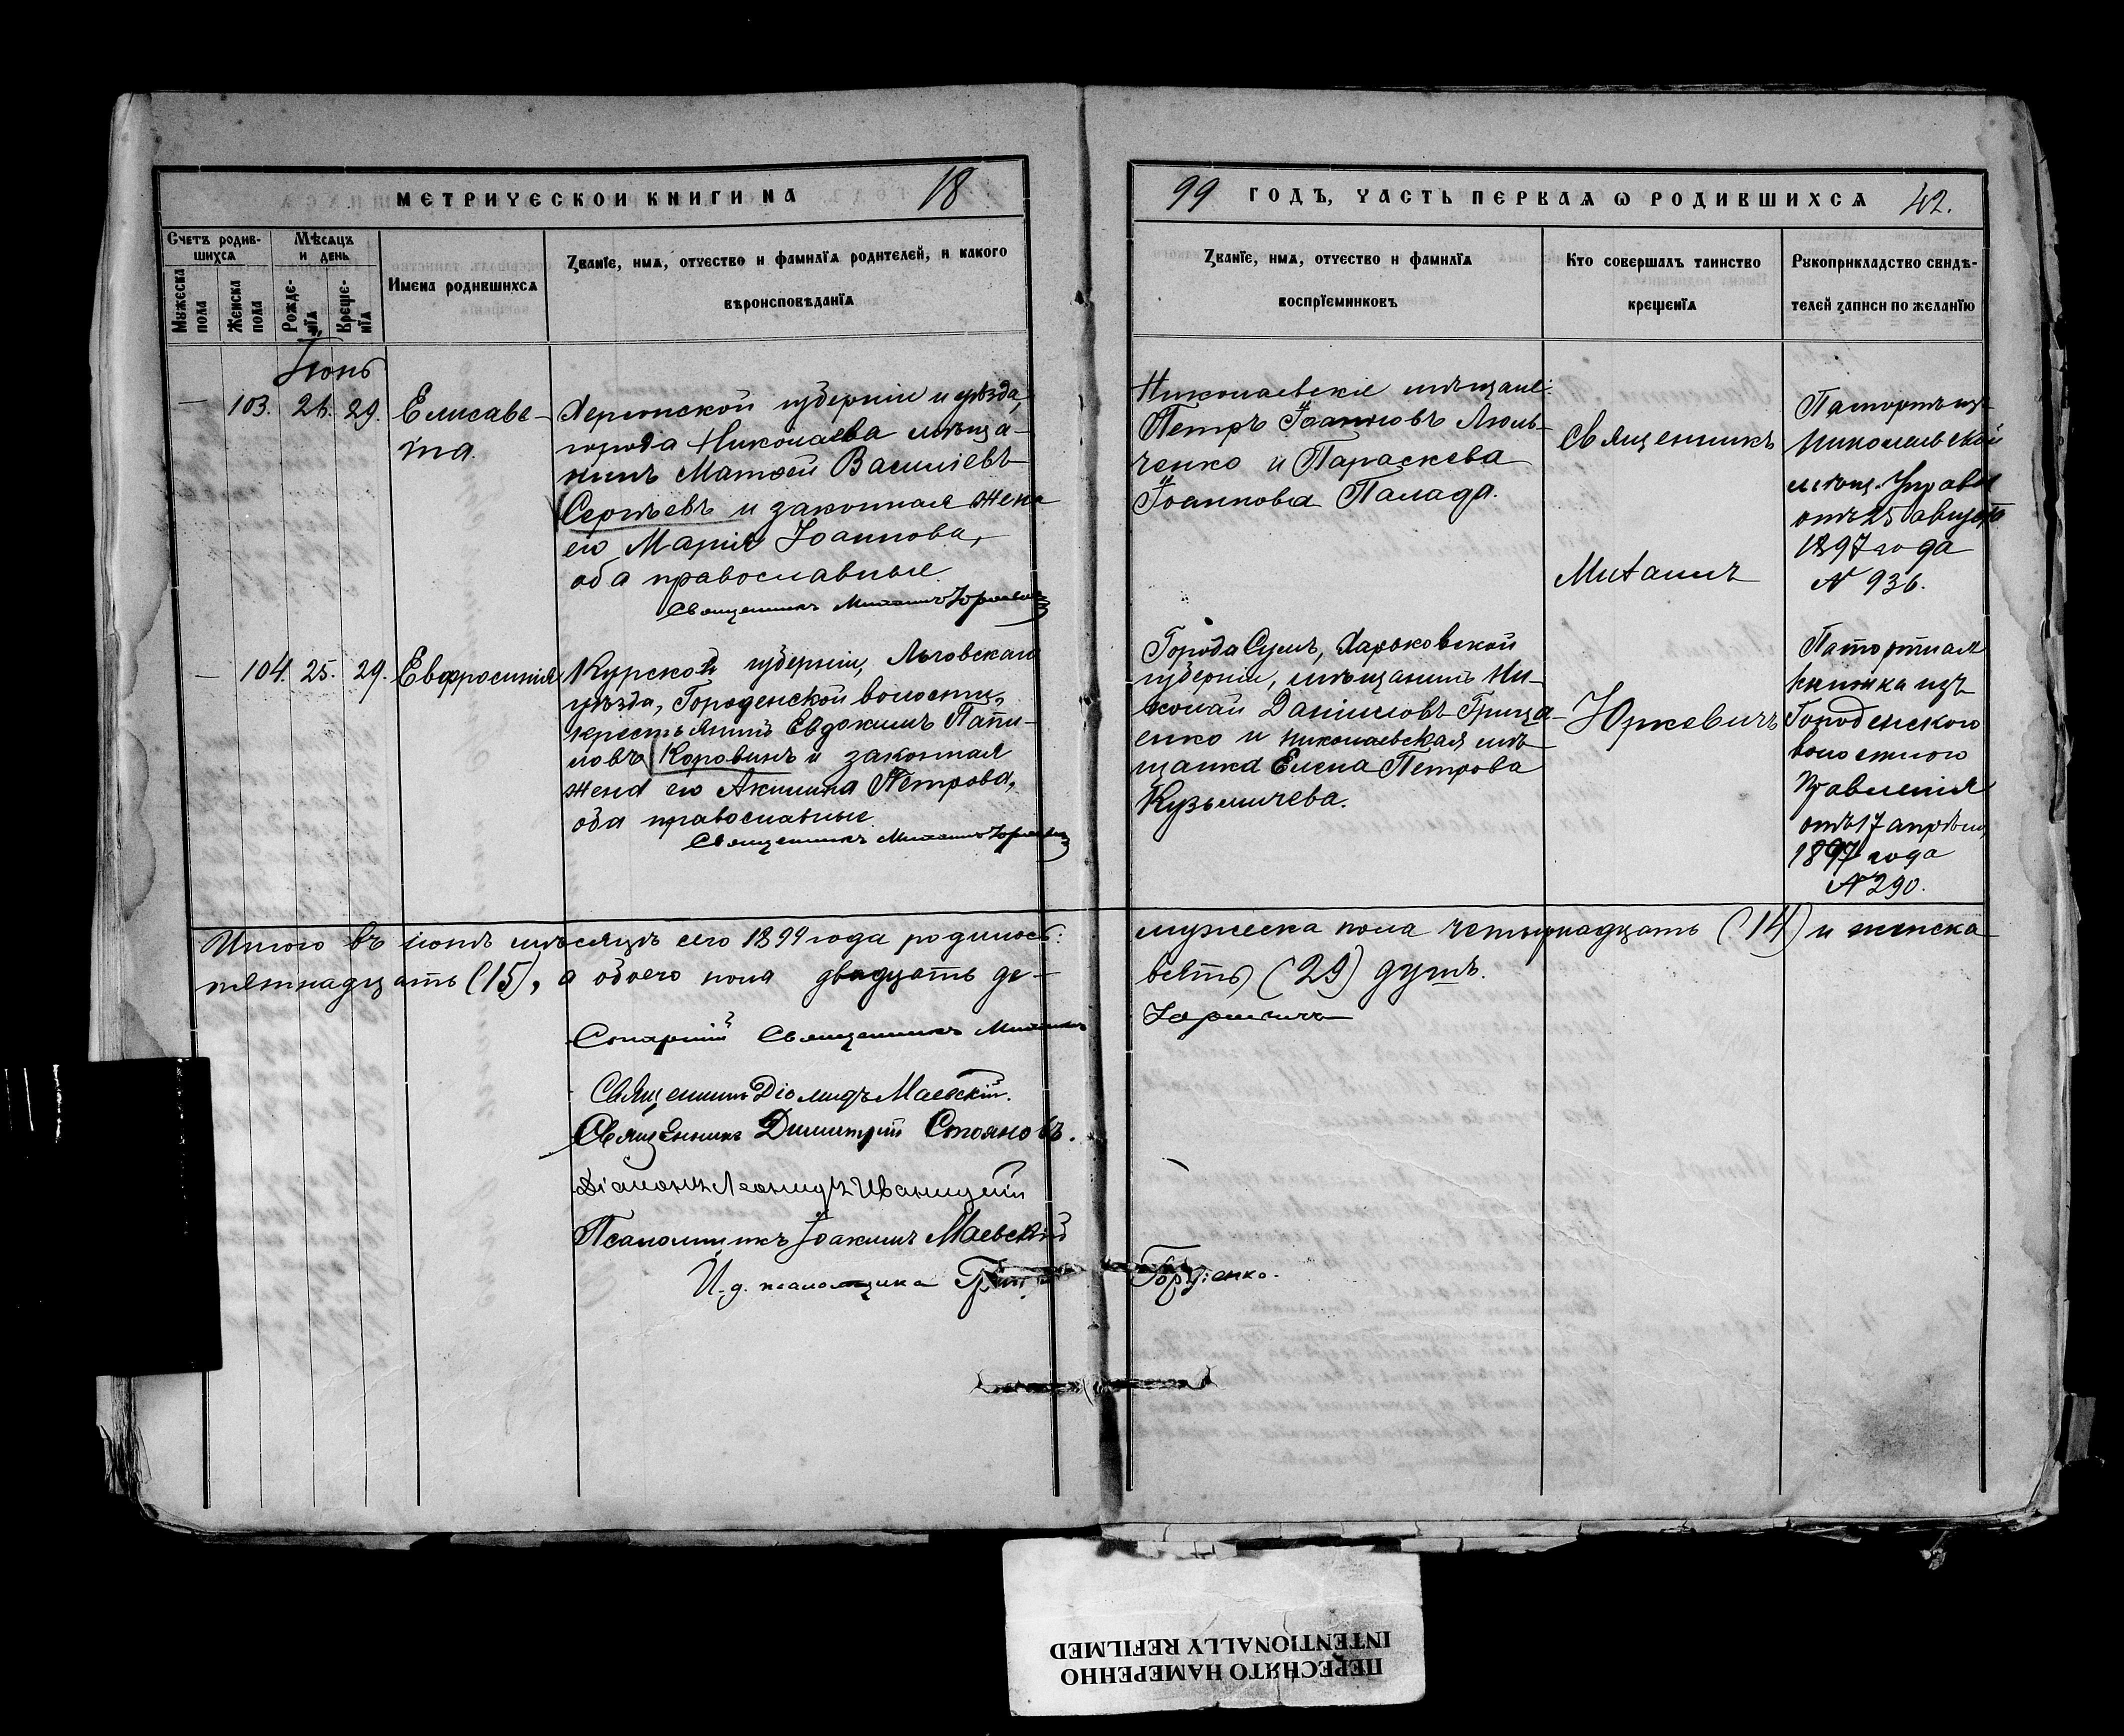 МЕТРИЧЕСКОЙ КНИГИ НА 18
Счетъ родив-
шихся
Мѣсяцъ
и день
Мужеска
пола
Женска
пола
Рожде-
нія
Креще-
нія
Имена родившихся
Званїе, имя, отчество и фамилїя родителей, и какого
вѣроисповѣданїя
Іюнь
— 103. 28. 29.
Елисаве-
та.
Херсонской губерніи и уѣзда,
города Николаева мѣща-
нинъ Матѳей Василіевъ
Сергѣевъ и законная жена
его Марія Іоаннова,
оба православные.
Священникъ Михаилъ Юркевичъ
— 104. 25. 29.
Евфросинія
Курской губерніи, Льговскаго
уѣзда, Городенской волости,
крестьянинъ Евдокимъ
Коровинъ и законная
жена его Акилина Петрова,
оба православные.
Священникъ Михаилъ Юркевичъ
Итого въ іюнѣ мѣсяцѣ сего 1899 года родилось:
пятнадцать (15), а обоего пола двадцать де-
Старшій Священникъ Михаилъ
Священникъ Діомидъ Маевскій.
Священникъ Димитрій Стояновъ.
Діаконъ Леонидъ Иваницкій
Псаломщикъ Іоакимъ Маевскій
И. д. псаломщика Григ.
99 ГОДЪ, ЧАСТЬ ПЕРВАЯ Ѡ РОДИВШИХСЯ 42.
Званїе, имя, отчество и фамилїя
воспрїемниковъ
Кто совершалъ таинство
крещенїя
Рукоприкладство свидѣ-
телей записи по желанїю
Николаевскіе мѣщане:
Петръ Іоанновъ Люль-
ченко и Параскева
Іоаннова Палада.
Священникъ
Михаилъ
Паспортъ изъ
Николаевской
мѣщ. Управы
отъ 25 августа
1897 года
№ 936.
Города Сумъ, Харьковской
губерніи, мѣщанинъ Ни-
колай Даниловъ Грища-
енко и николаевская мѣ-
щанка Елена Петрова
Кузьмичева.
Юркевичъ
Паспортная
книжка изъ
Городенского
волостного
Правленія
отъ 17 апрѣля
1897 года
№ 290.
мужеска пола четырнадцать (14) и женска
вять (29) душъ.
Юркевичъ
ПЕРЕСНЯТО НАМЕРЕННО
INTENTIONALLY REFILMED